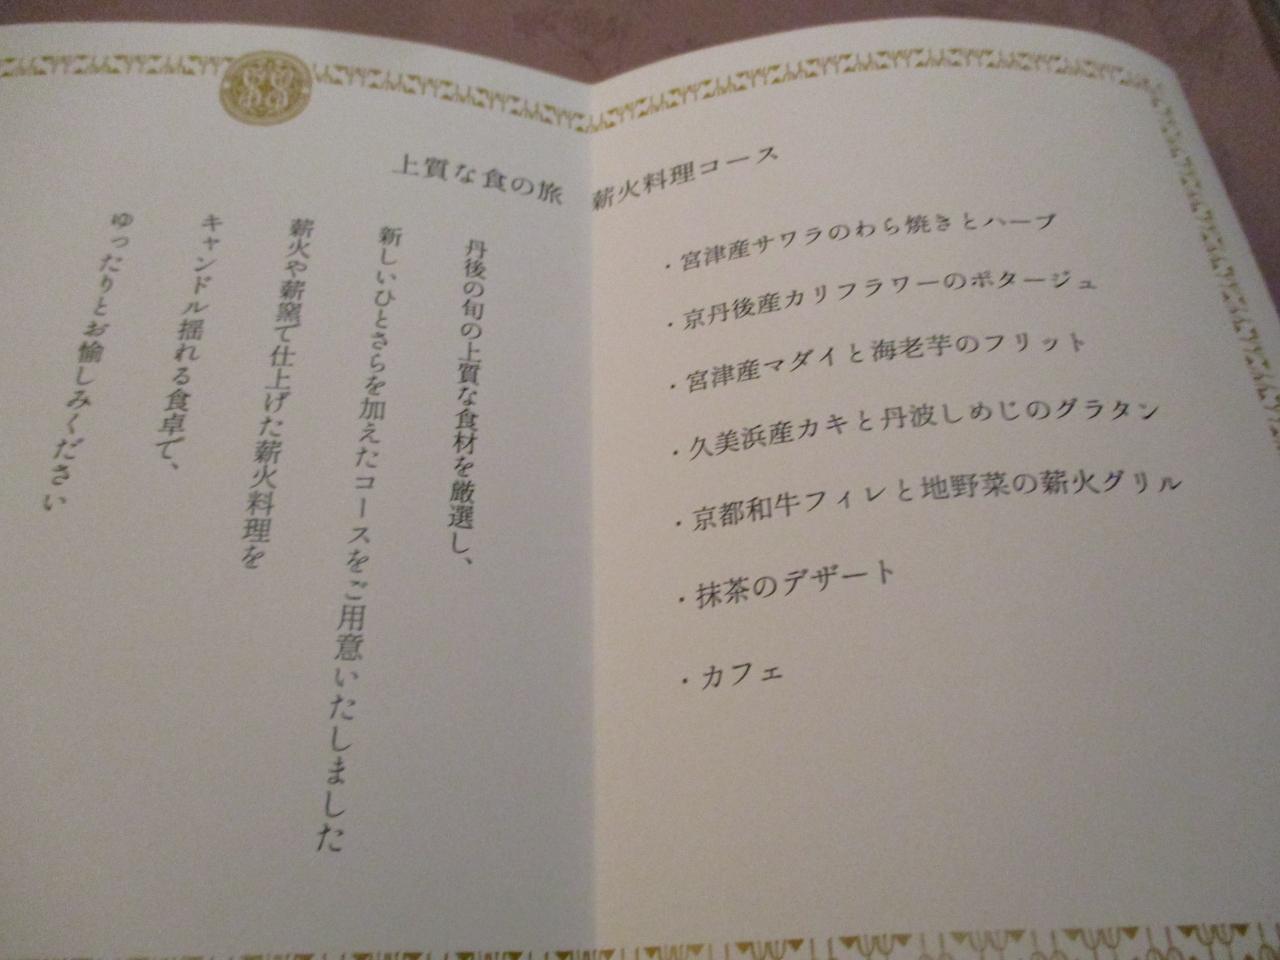 上質な食の旅
丹後の旬の上質な食材を厳選し、
新しいひとさらを加えたコースをご用意いたしました
薪火や薪窯で仕上げた薪火料理を
キャンドル揺れる食卓で、
ゆったりとお愉しみください
薪火料理コース
・宮津産サワラのわら焼きとハーブ
・京丹後産カリフラワーのポタージュ
・宮津産マダイと海老芋のフリット
・久美浜産カキと丹波しめじのグラタン
・京都和牛フィレと地野菜の薪火グリル
・抹茶のデザート
・カフェ